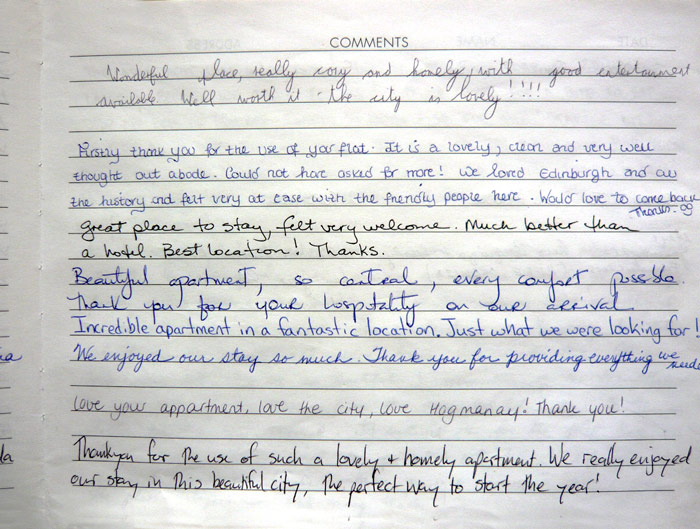 COMMENTS
Wonderful place, really cosy and homely, with good entertainment
available. Well worth it - the city is lovely!!!!!
Firstly thank you for the use of your flat. It is a lovely, clean and very well
thought out abode. Could not have asked for more! We loved Edinburgh and all
the history and felt very at ease with the friendly people here. Would love to come back
Thanks
Great place to stay, felt very welcome. Much better than
a hotel. Best location! Thanks.
Beautiful apartment, so central, every comfort possible.
Thank you for your hospitality on our arrival
Incredible apartment in a fantastic location. Just what we were looking for!
We enjoyed our stay so much. Thank you for providing everything we
needed
Love your appartment, love the city, love Hogmanay! Thank you!
Thankyou for the use of such a lovely + homely apartment. We really enjoyed
our stay in this beautiful city, the perfect way to start the year!